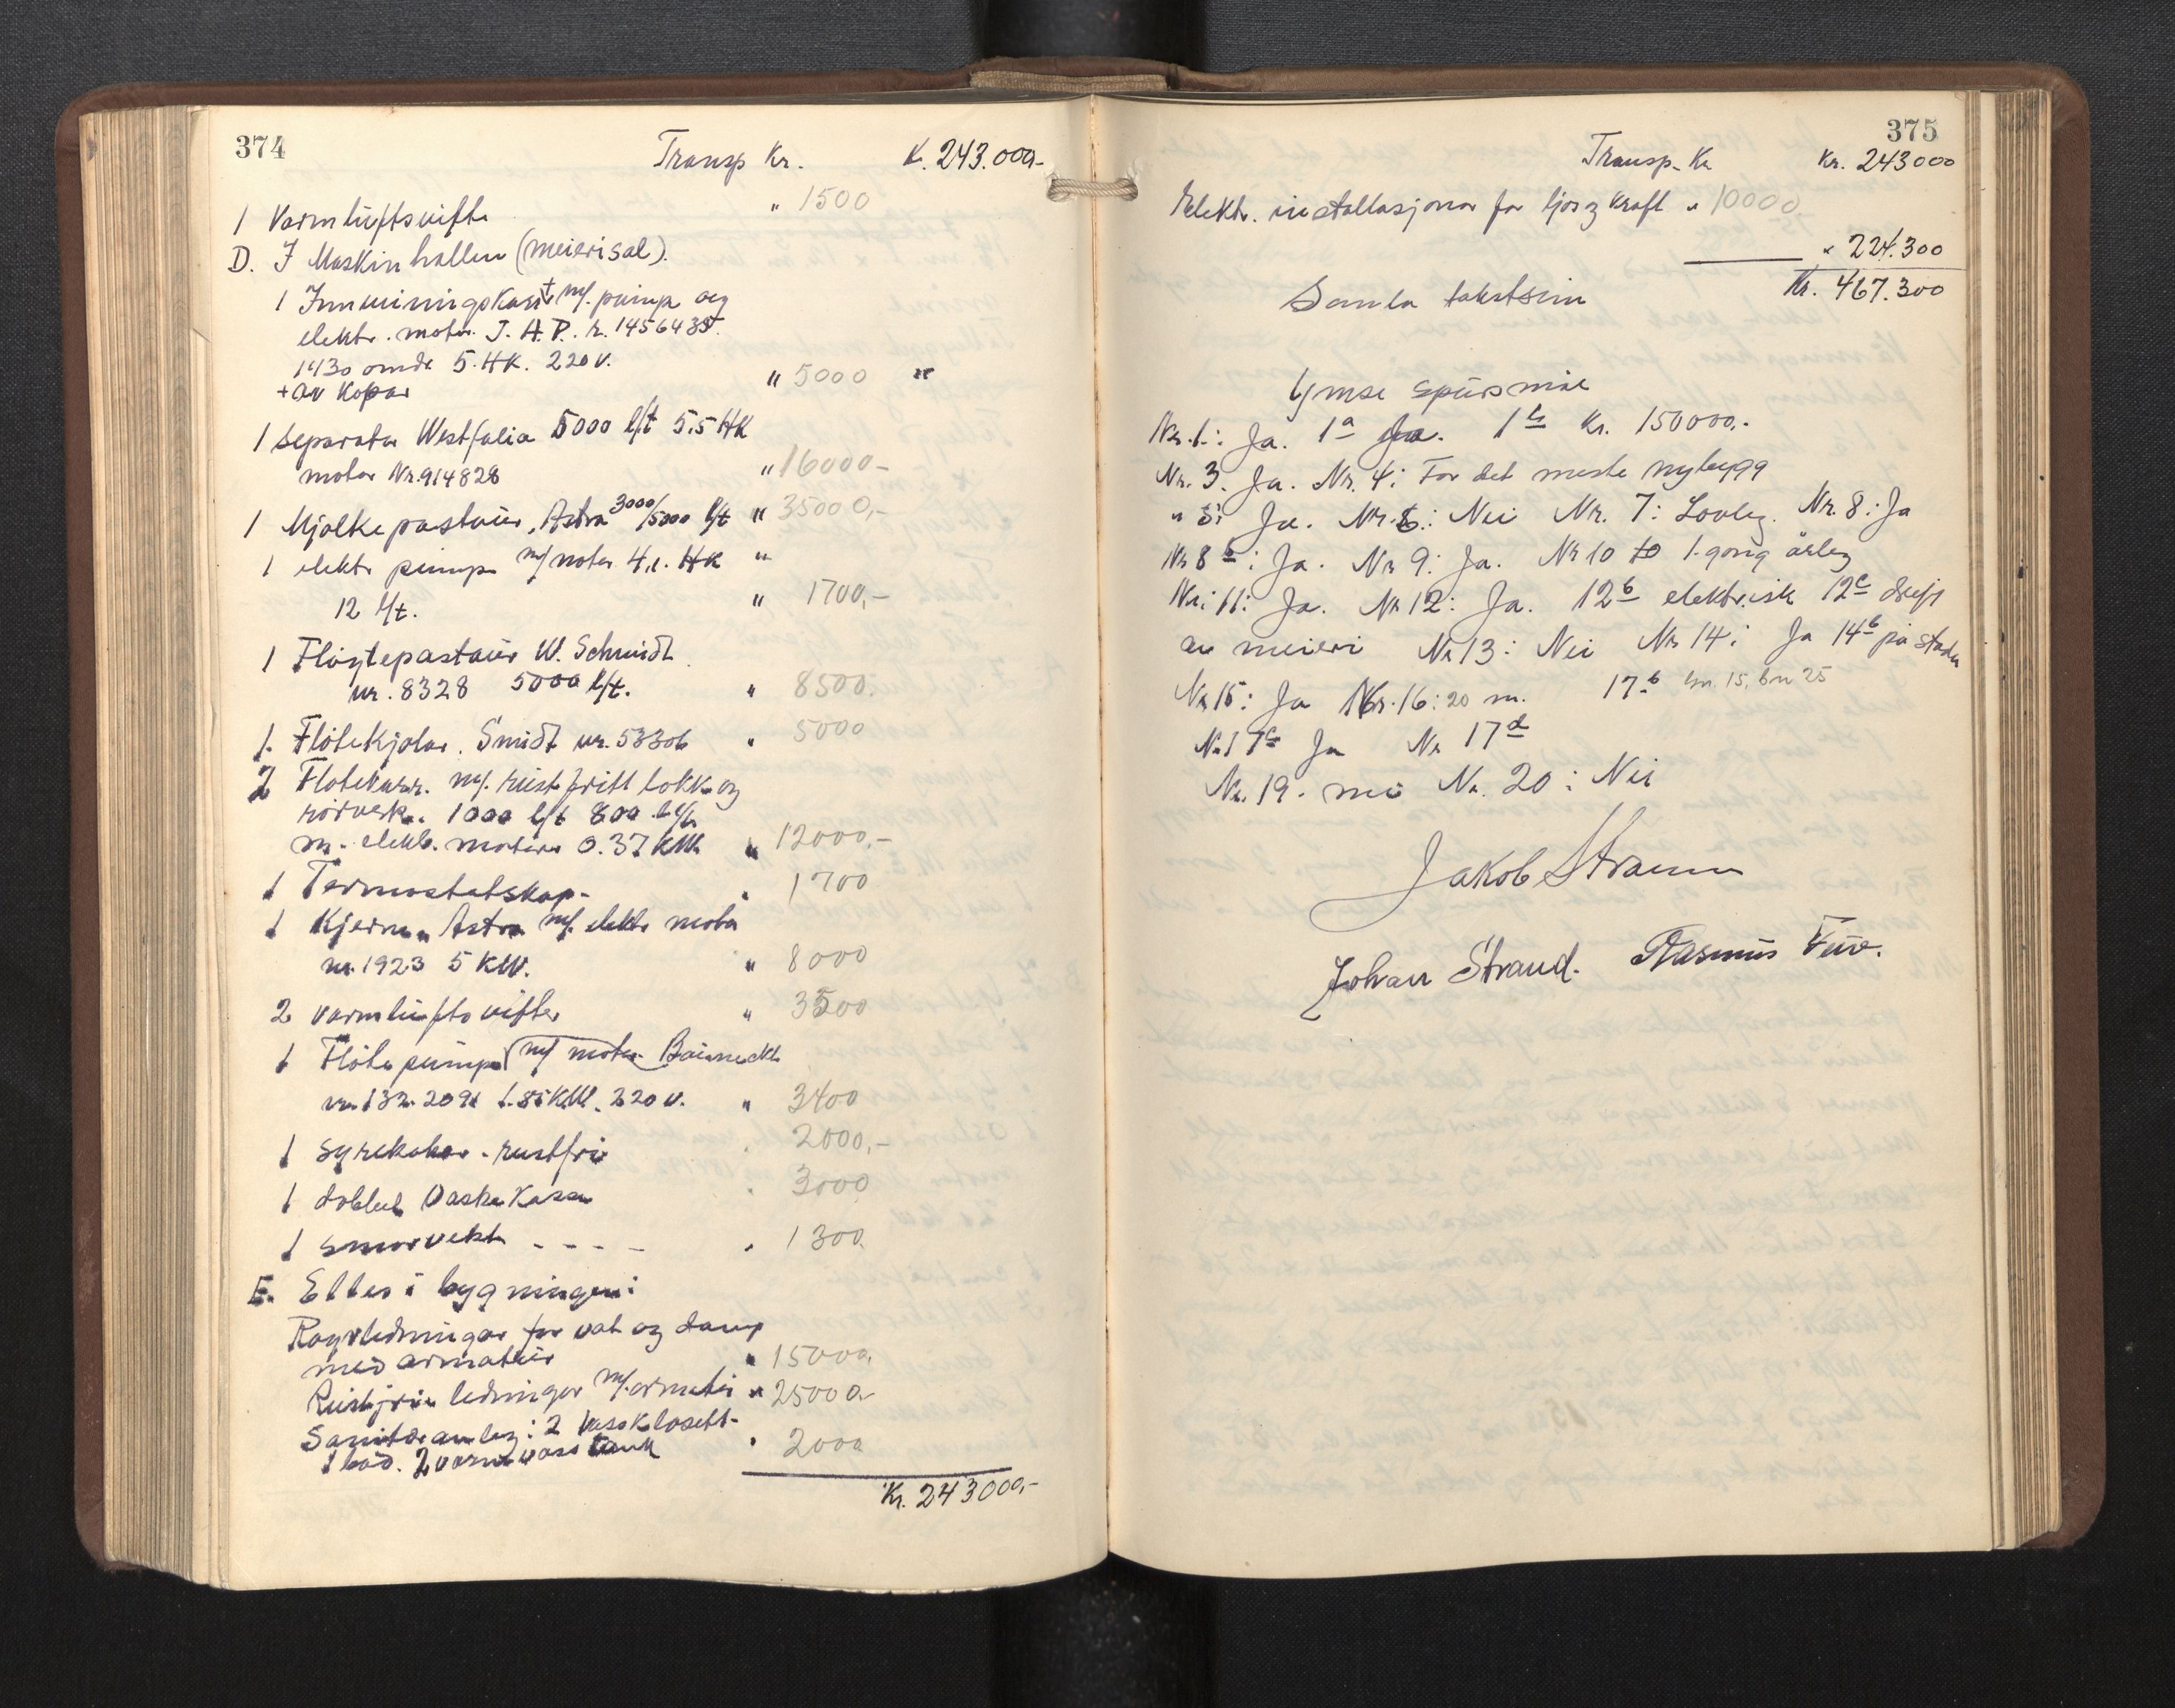 374
Transp Kr. Kr. 243.000,-
1 Varmluftsvifte " 1500
D. I Maskinhallen (meierisal).
1 Innveiningskarr + m/. pump og
elektr. motor. J. A. P. 
1430 omdr 5. HK. 220 V.
+ av Kopar " 5000 "
1 Separator Westfalia 5000 l/t 5.5 HK
motor Nr. 914828 " 16000-
1 Mjølkepastøur. Astra 3000/5000 l/t " 35000,-
1 elektr pumpe m/ motor HK "
12 l/t. " 1700,-
1 Fløytepastøur W. Schmidt
nr. 8328 5000 l/t. " 8500.
1. Fløtekjølar. Smidt nr. 53306 " 5000
2 Fløtekarr. m/. rustfritt lokk og
rørverk. 1000 l/t 800 l/t
m. elektr. motorer 0.37 KW. " 12000,-
1 Termostatskap - " 1700
1 Kjerne Astra m/. elektr motor
nr. 1923 5 KW. " 8000
2 varmluftsvifter " 3500
1 Fløtepumpe m/ motor
nr. 132. 2091 1.85 KW. 220 V. " 3400
1 syrekokar - rustfri " 2000,-
1 dobbel Vaskekasse " 3000
1 smørvekt - - - - " 1300
E. Elles i bygningen:
Røyrledningar for vat og damp
med armatur " 15000,
Rustfrie ledningar m/. armatur " 25000-
Sanitæranlegg: 2 Vassklosett -
1 bad. 2 varmvasstank " 2000
Kr. 243000,-
375
Transp. Kr Kr. 243000
Elektr. installasjonar for ljos og kraft " 10000,
" 224.300
Samla takstsum Kr. 467.300
Ymse spursmål
Nr. 1.: Ja. 1a Ja. 1b Kr. 150000,-
Nr. 3. Ja. Nr. 4: For det meste nybygg
" 5: Ja. Nr. 6: Nei Nr. 7: Lovleg. Nr. 8: Ja
Nr 8 b: Ja. Nr 9: Ja. Nr 10 1. gong årleg
Nr. 11: Ja. Nr 12: Ja. 12b elektrisk 12c drift
av meieri Nr 13: Nei Nr 14: Ja 14b på staden
Nr 15: Ja Nr. 16: 20 m. 17b gn. 15, bn 25
Nr 17c Ja Nr 17d
Nr. 19. nei Nr. 20: Nei
Jakob Straum
Johan Strand. Rasmus